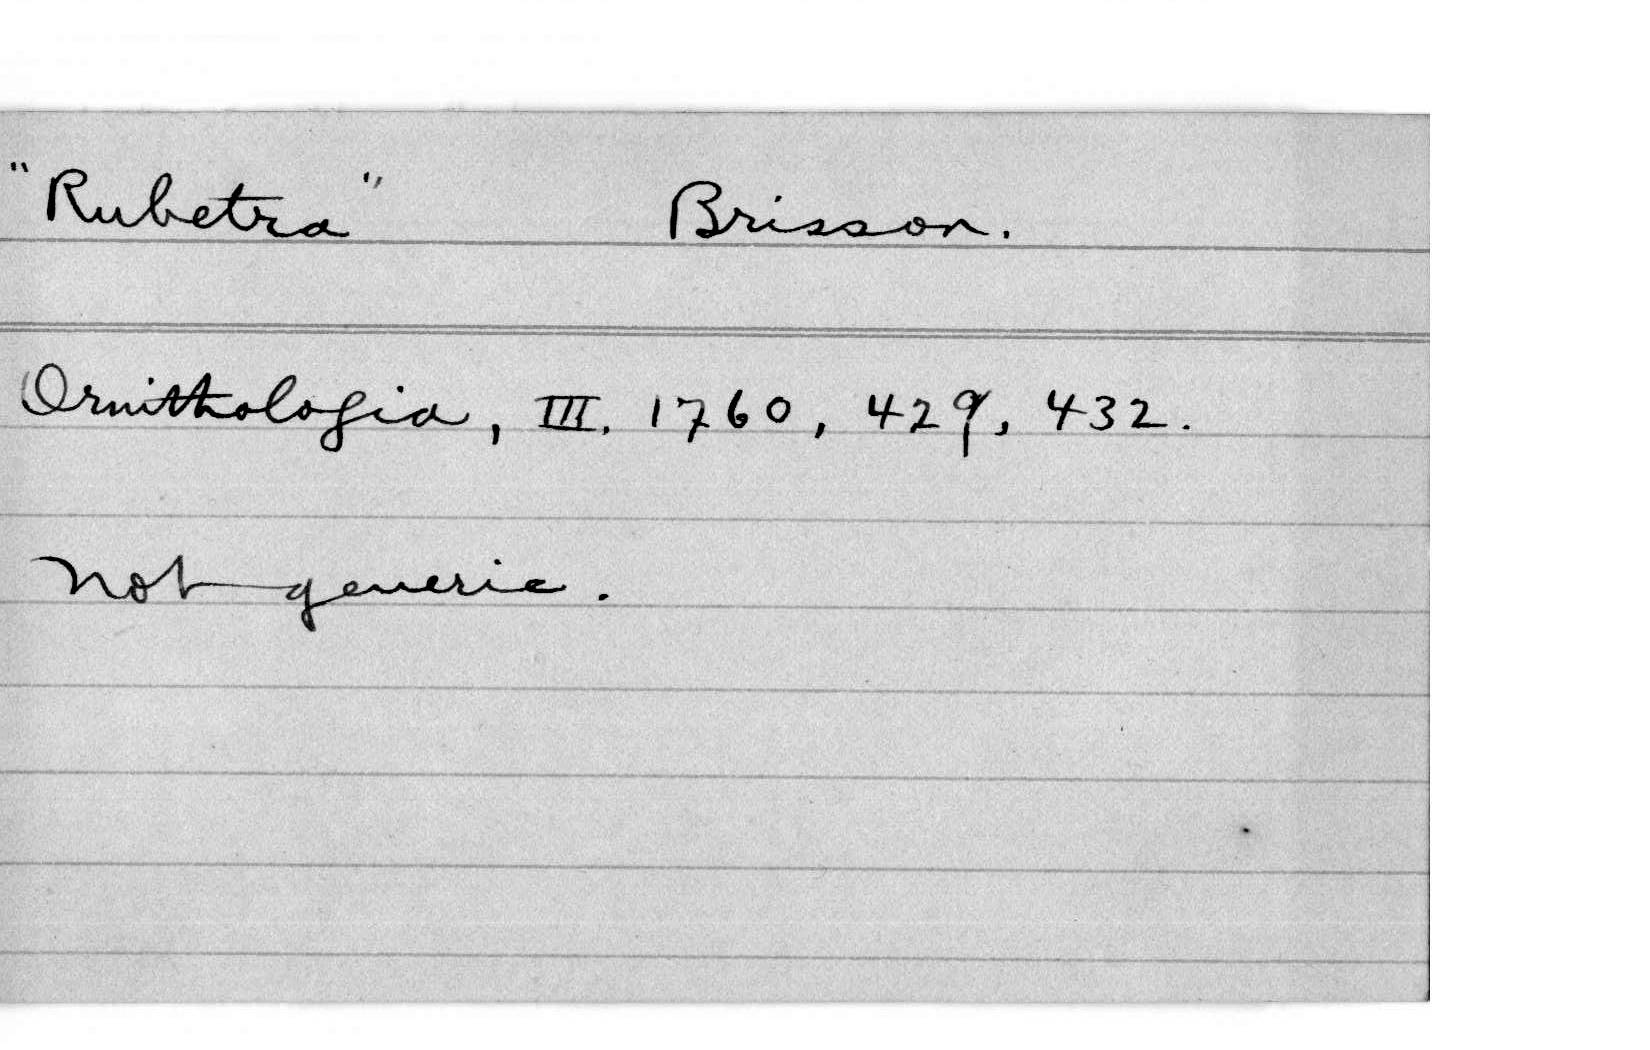 "Rubetra" Brisson.
Ornithologia, III. 1760, 429, 432.
Not generic.